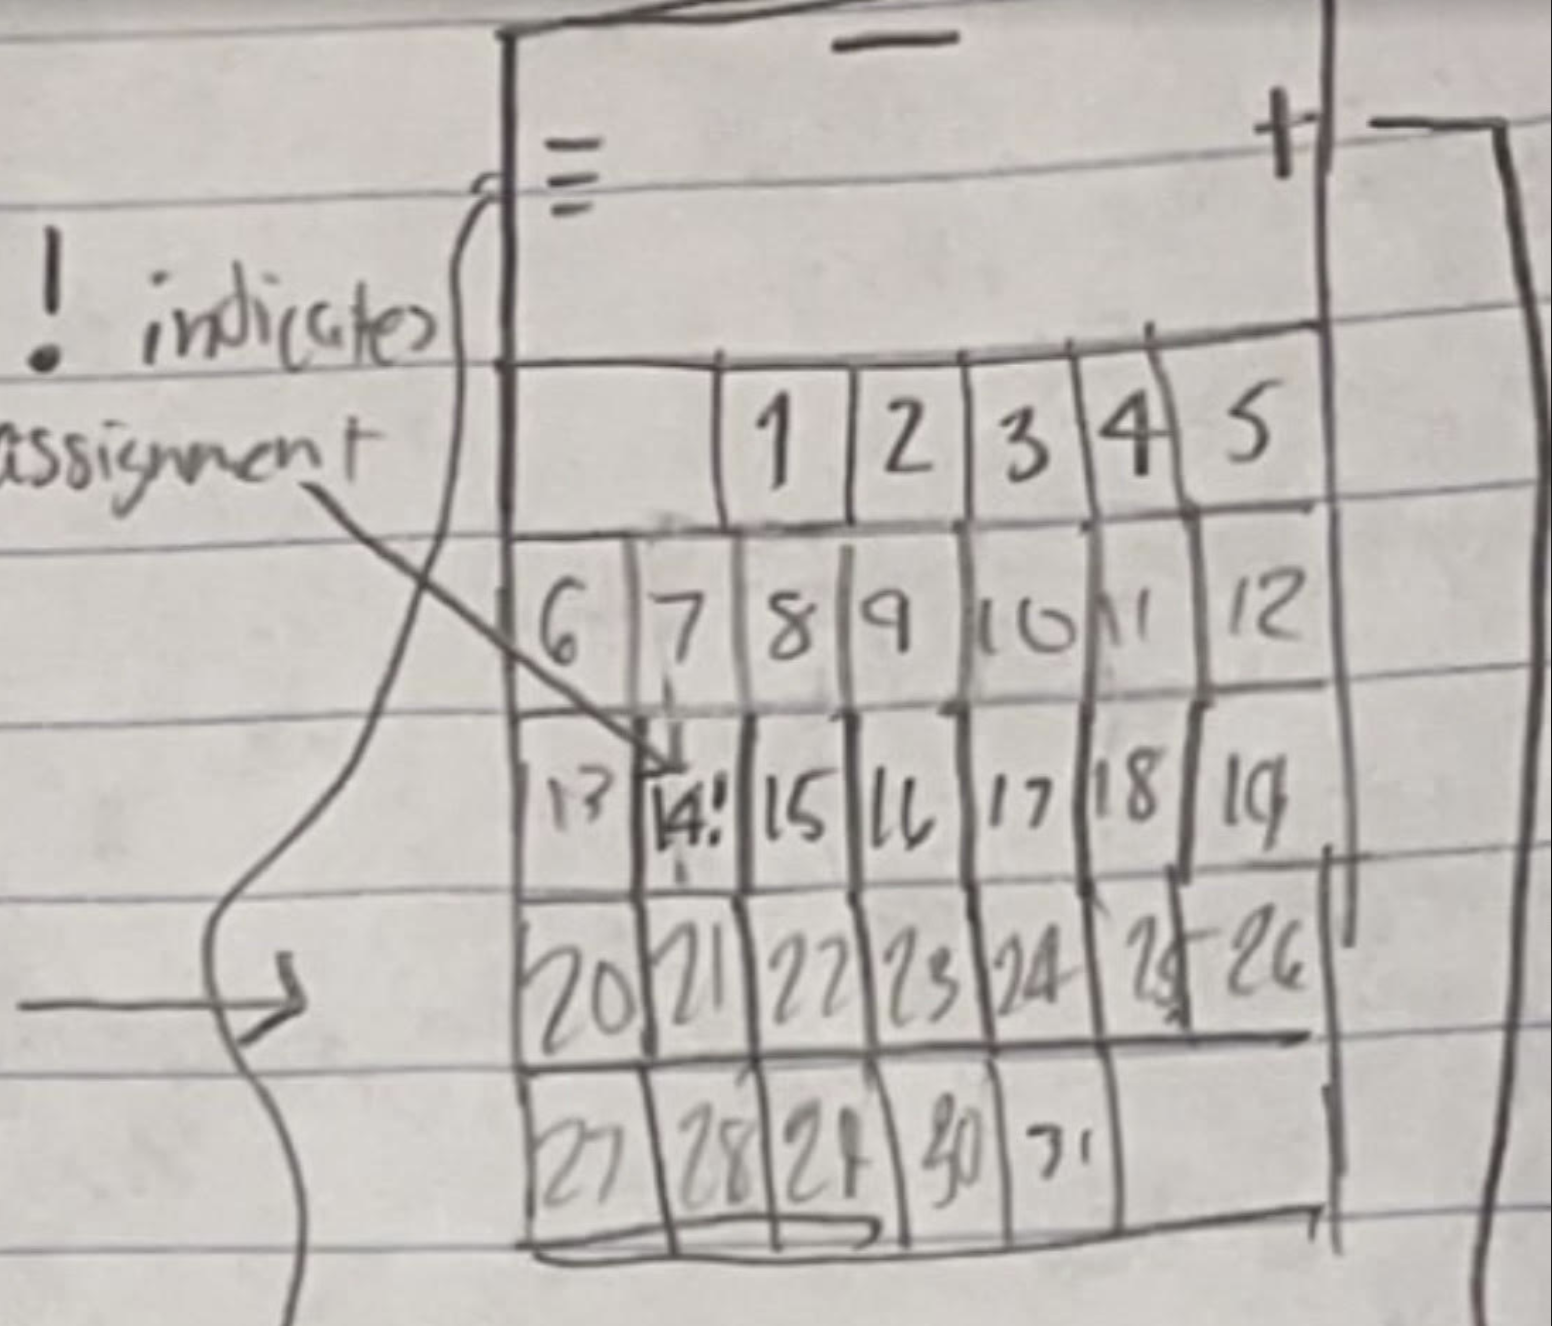 +
! indicates
assignment
1 2 3 4 5
6 7 8 9 10 11 12
13 14! 15 16 17 18 19
20 21 22 23 24 25 26
27 28 29 30 31